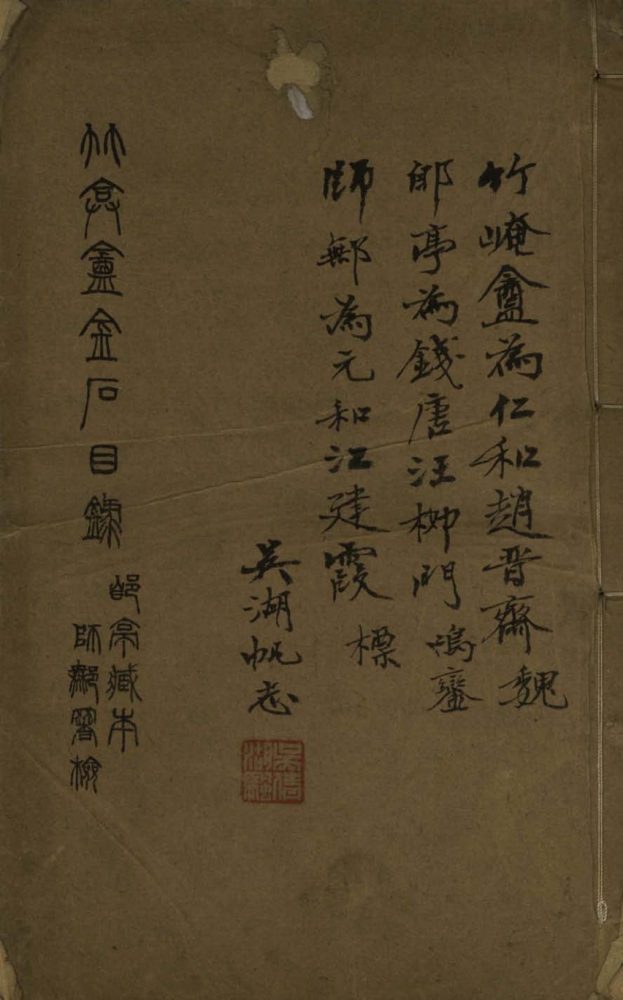 竹崦盦為仁和趙晉齋魏
郋亭為錢唐汪柳門鳴鑾
師鄦為元和江建霞標
吳湖帆志
竹弇盦金石目錄
郋亭藏本
師鄦署檢